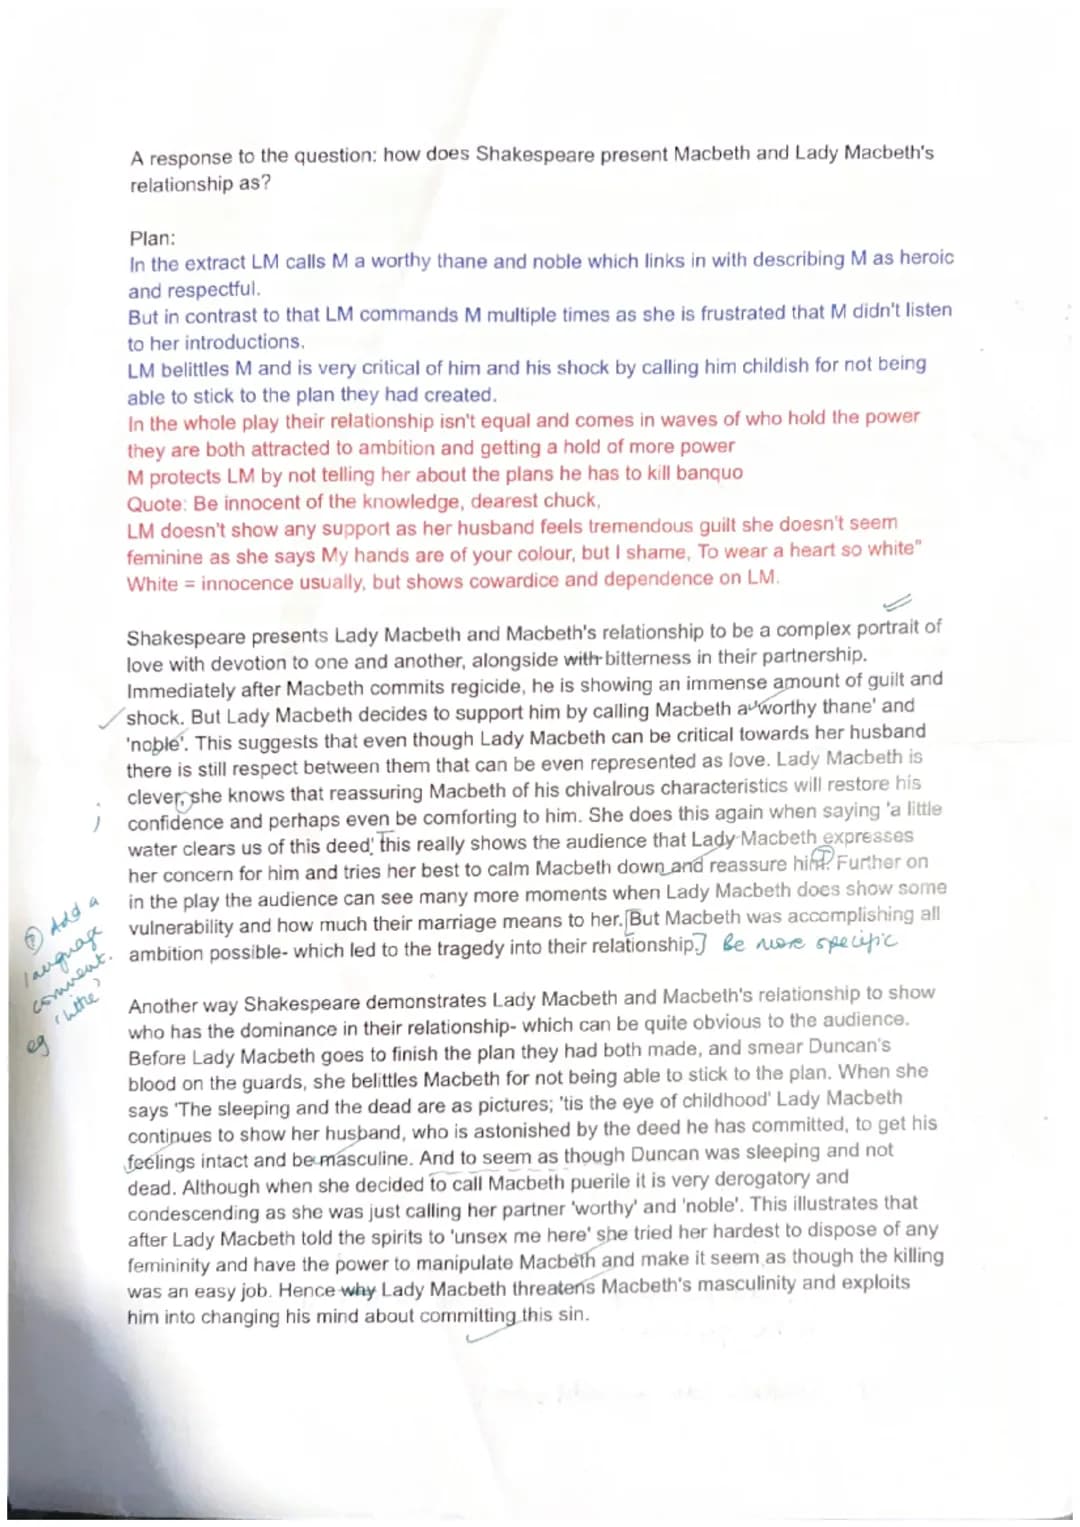 A response to the question: how does Shakespeare present Macbeth and Lady Macbeth's
relationship as?
Plan:
In the extract LM calls M a worthy thane and noble which links in with describing M as heroic
and respectful.
But in contrast to that LM commands M multiple times as she is frustrated that M didn't listen
to her introductions.
LM belittles M and is very critical of him and his shock by calling him childish for not being
able to stick to the plan they had created.
In the whole play their relationship isn't equal and comes in waves of who hold the power
they are both attracted to ambition and getting a hold of more power
M protects LM by not telling her about the plans he has to kill banquo
Quote: Be innocent of the knowledge, dearest chuck,
LM doesn't show any support as her husband feels tremendous guilt she doesn't seem
feminine as she says My hands are of your colour, but I shame, To wear a heart so white"
White = innocence usually, but shows cowardice and dependence on LM.
Shakespeare presents Lady Macbeth and Macbeth's relationship to be a complex portrait of
love with devotion to one and another, alongside with bitterness in their partnership.
Immediately after Macbeth commits regicide, he is showing an immense amount of guilt and
shock. But Lady Macbeth decides to support him by calling Macbeth a 'worthy thane' and
'noble'. This suggests that even though Lady Macbeth can be critical towards her husband
there is still respect between them that can be even represented as love. Lady Macbeth is
clever, she knows that reassuring Macbeth of his chivalrous characteristics will restore his
;
confidence and perhaps even be comforting to him. She does this again when saying 'a little
water clears us of this deed' this really shows the audience that Lady Macbeth expresses
T
her concern for him and tries her best to calm Macbeth down and reassure him. Further on
in the play the audience can see many more moments when Lady Macbeth does show some
vulnerability and how much their marriage means to her. [But Macbeth was accomplishing all
ambition possible- which led to the tragedy into their relationship.] Be more specific
Add a
language
comment.
eg 'little'
Another way Shakespeare demonstrates Lady Macbeth and Macbeth's relationship to show
who has the dominance in their relationship- which can be quite obvious to the audience.
Before Lady Macbeth goes to finish the plan they had both made, and smear Duncan's
blood on the guards, she belittles Macbeth for not being able to stick to the plan. When she
says 'The sleeping and the dead are as pictures; 'tis the eye of childhood' Lady Macbeth
continues to show her husband, who is astonished by the deed he has committed, to get his
feelings intact and be masculine. And to seem as though Duncan was sleeping and not
dead. Although when she decided to call Macbeth puerile it is very derogatory and
condescending as she was just calling her partner 'worthy' and 'noble'. This illustrates that
after Lady Macbeth told the spirits to 'unsex me here' she tried her hardest to dispose of any
femininity and have the power to manipulate Macbeth and make it seem as though the killing
was an easy job. Hence why Lady Macbeth threatens Macbeth's masculinity and exploits
him into changing his mind about committing this sin.